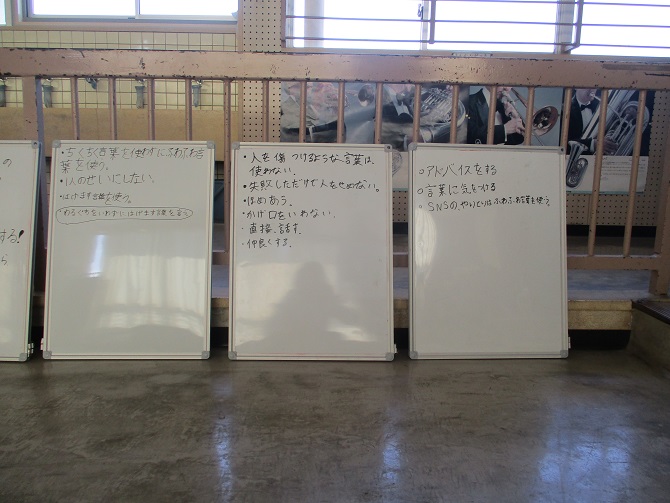 の
する!
ら
・ちくちく言葉を使わずにふわふわ言
葉を使う。
・人のせいにしない。
・はげます言葉を使う。
・わるぐちをいわずにはげます言葉を言う
・人を傷つけるような言葉は、
使わない。
・失敗しただけで人をせめない。
・ほめあう。
・かげ口をいわない。
・直接、話す。
・仲良くする。
○アドバイスをする
○言葉に気をつける
○SNSのやりとりはふわふわ言葉を使う